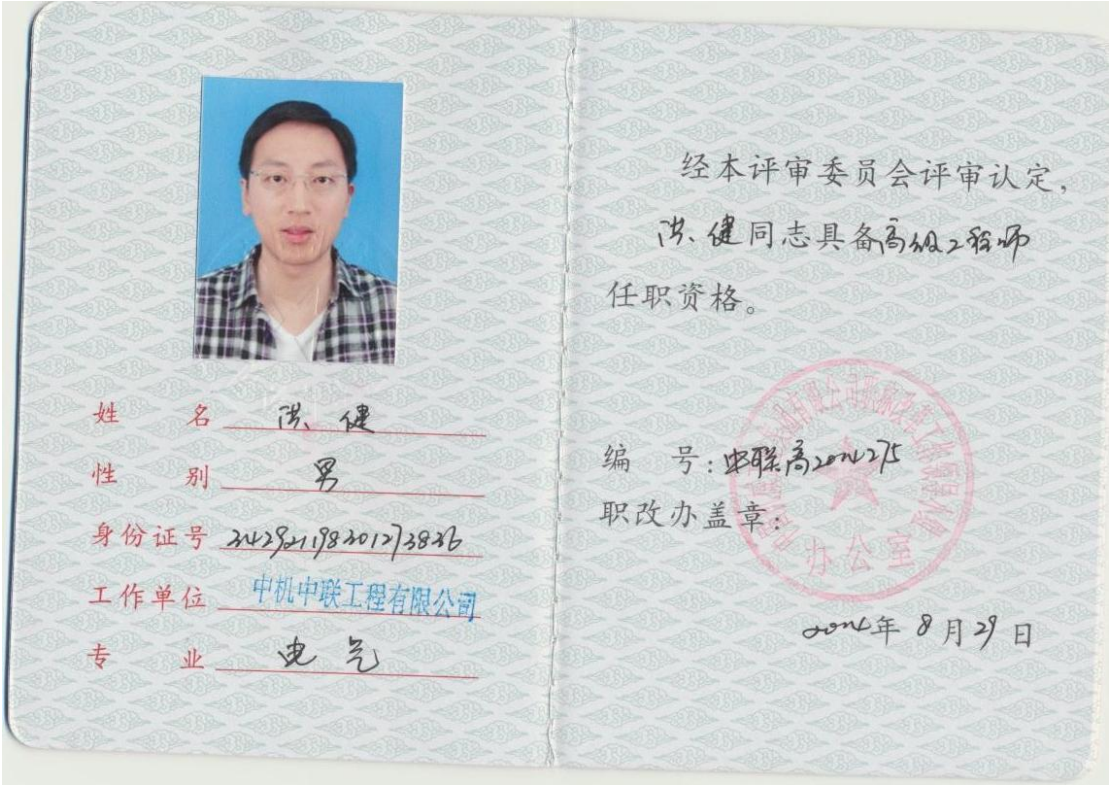 姓 名 洪健
性 别 男
身份证号
工作单位 中机中联工程有限公司
专 业 电气
经本评审委员会评审认定,
洪健同志具备高级工程师
任职资格。
编 号:中联高2014275
职改办盖章:
办公室
2014年8月29日